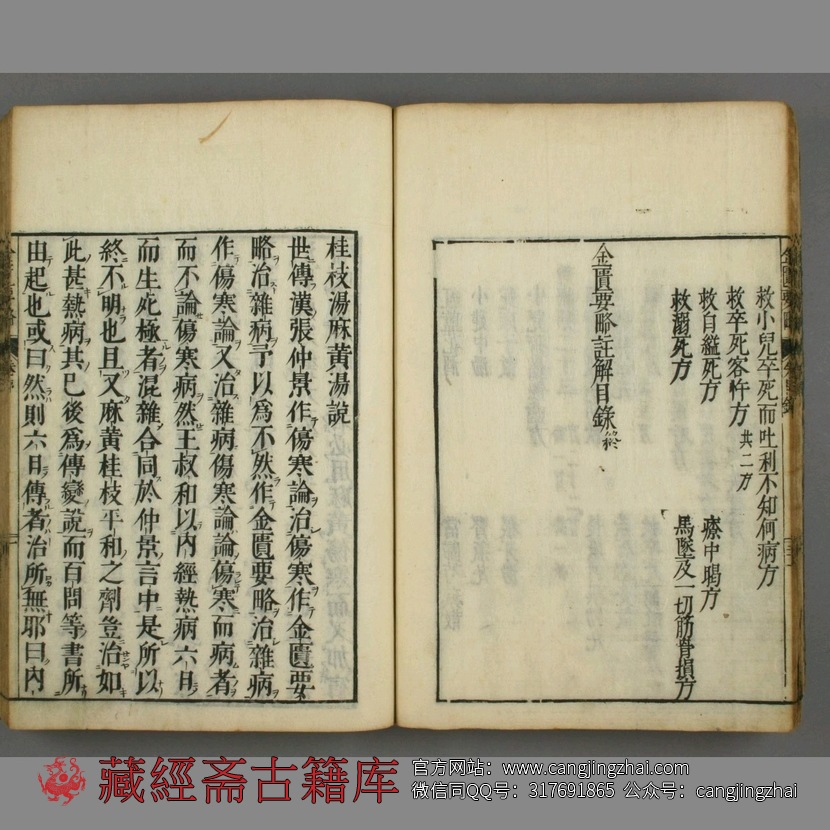 救小兒卒死而吐利不知何病方
救卒死客忤方 共二方
救自縊死方 療中暍方
救溺死方 馬墜及一切筋骨損方
金匱要略註解目錄終
桂枝湯麻黃湯說
世傳漢張仲景作傷寒論治傷寒作金匱要
略治雜病予以爲不然作金匱要略治雜病
作傷寒論又治雜病傷寒論論傷寒而病者
而不論傷寒病然王叔和以內經熱病六日
而生死極者混雜合同於仲景言中是所以
終不明也且又麻黃桂枝平和之劑豈治如
此甚熱病其已後爲傳變說而百問等書所
由起也或曰然則六日傳者治所無耶曰內
藏經斋古籍库
官方网站：www.cangjingzhai.com
微信同QQ号：317691865 公众号：cangjingzhai